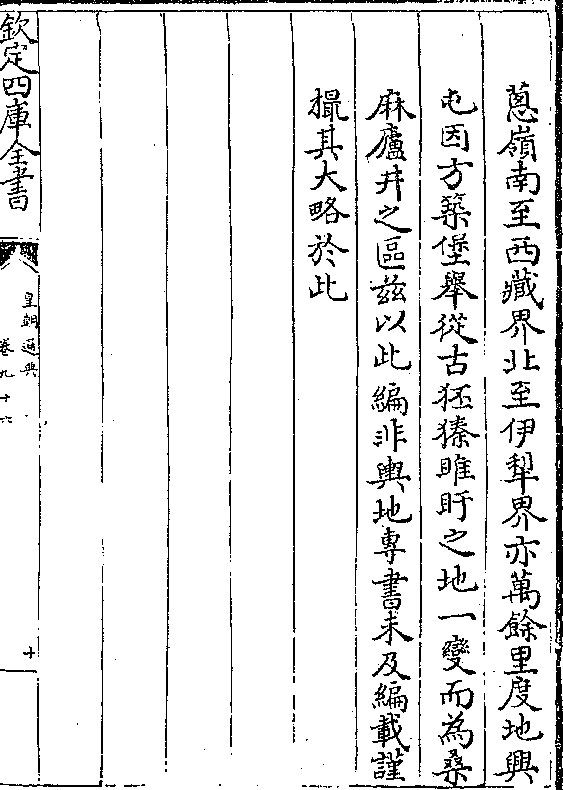 蔥嶺南至西藏界北至伊犂界亦萬餘里度地興
屯因方築堡舉從古狉獉雎盱之地一變而為桑
麻廬井之區兹以此編非輿地專書未及編載謹
撮其大略於此
欽定四庫全書
皇朝通典
卷九十六
十